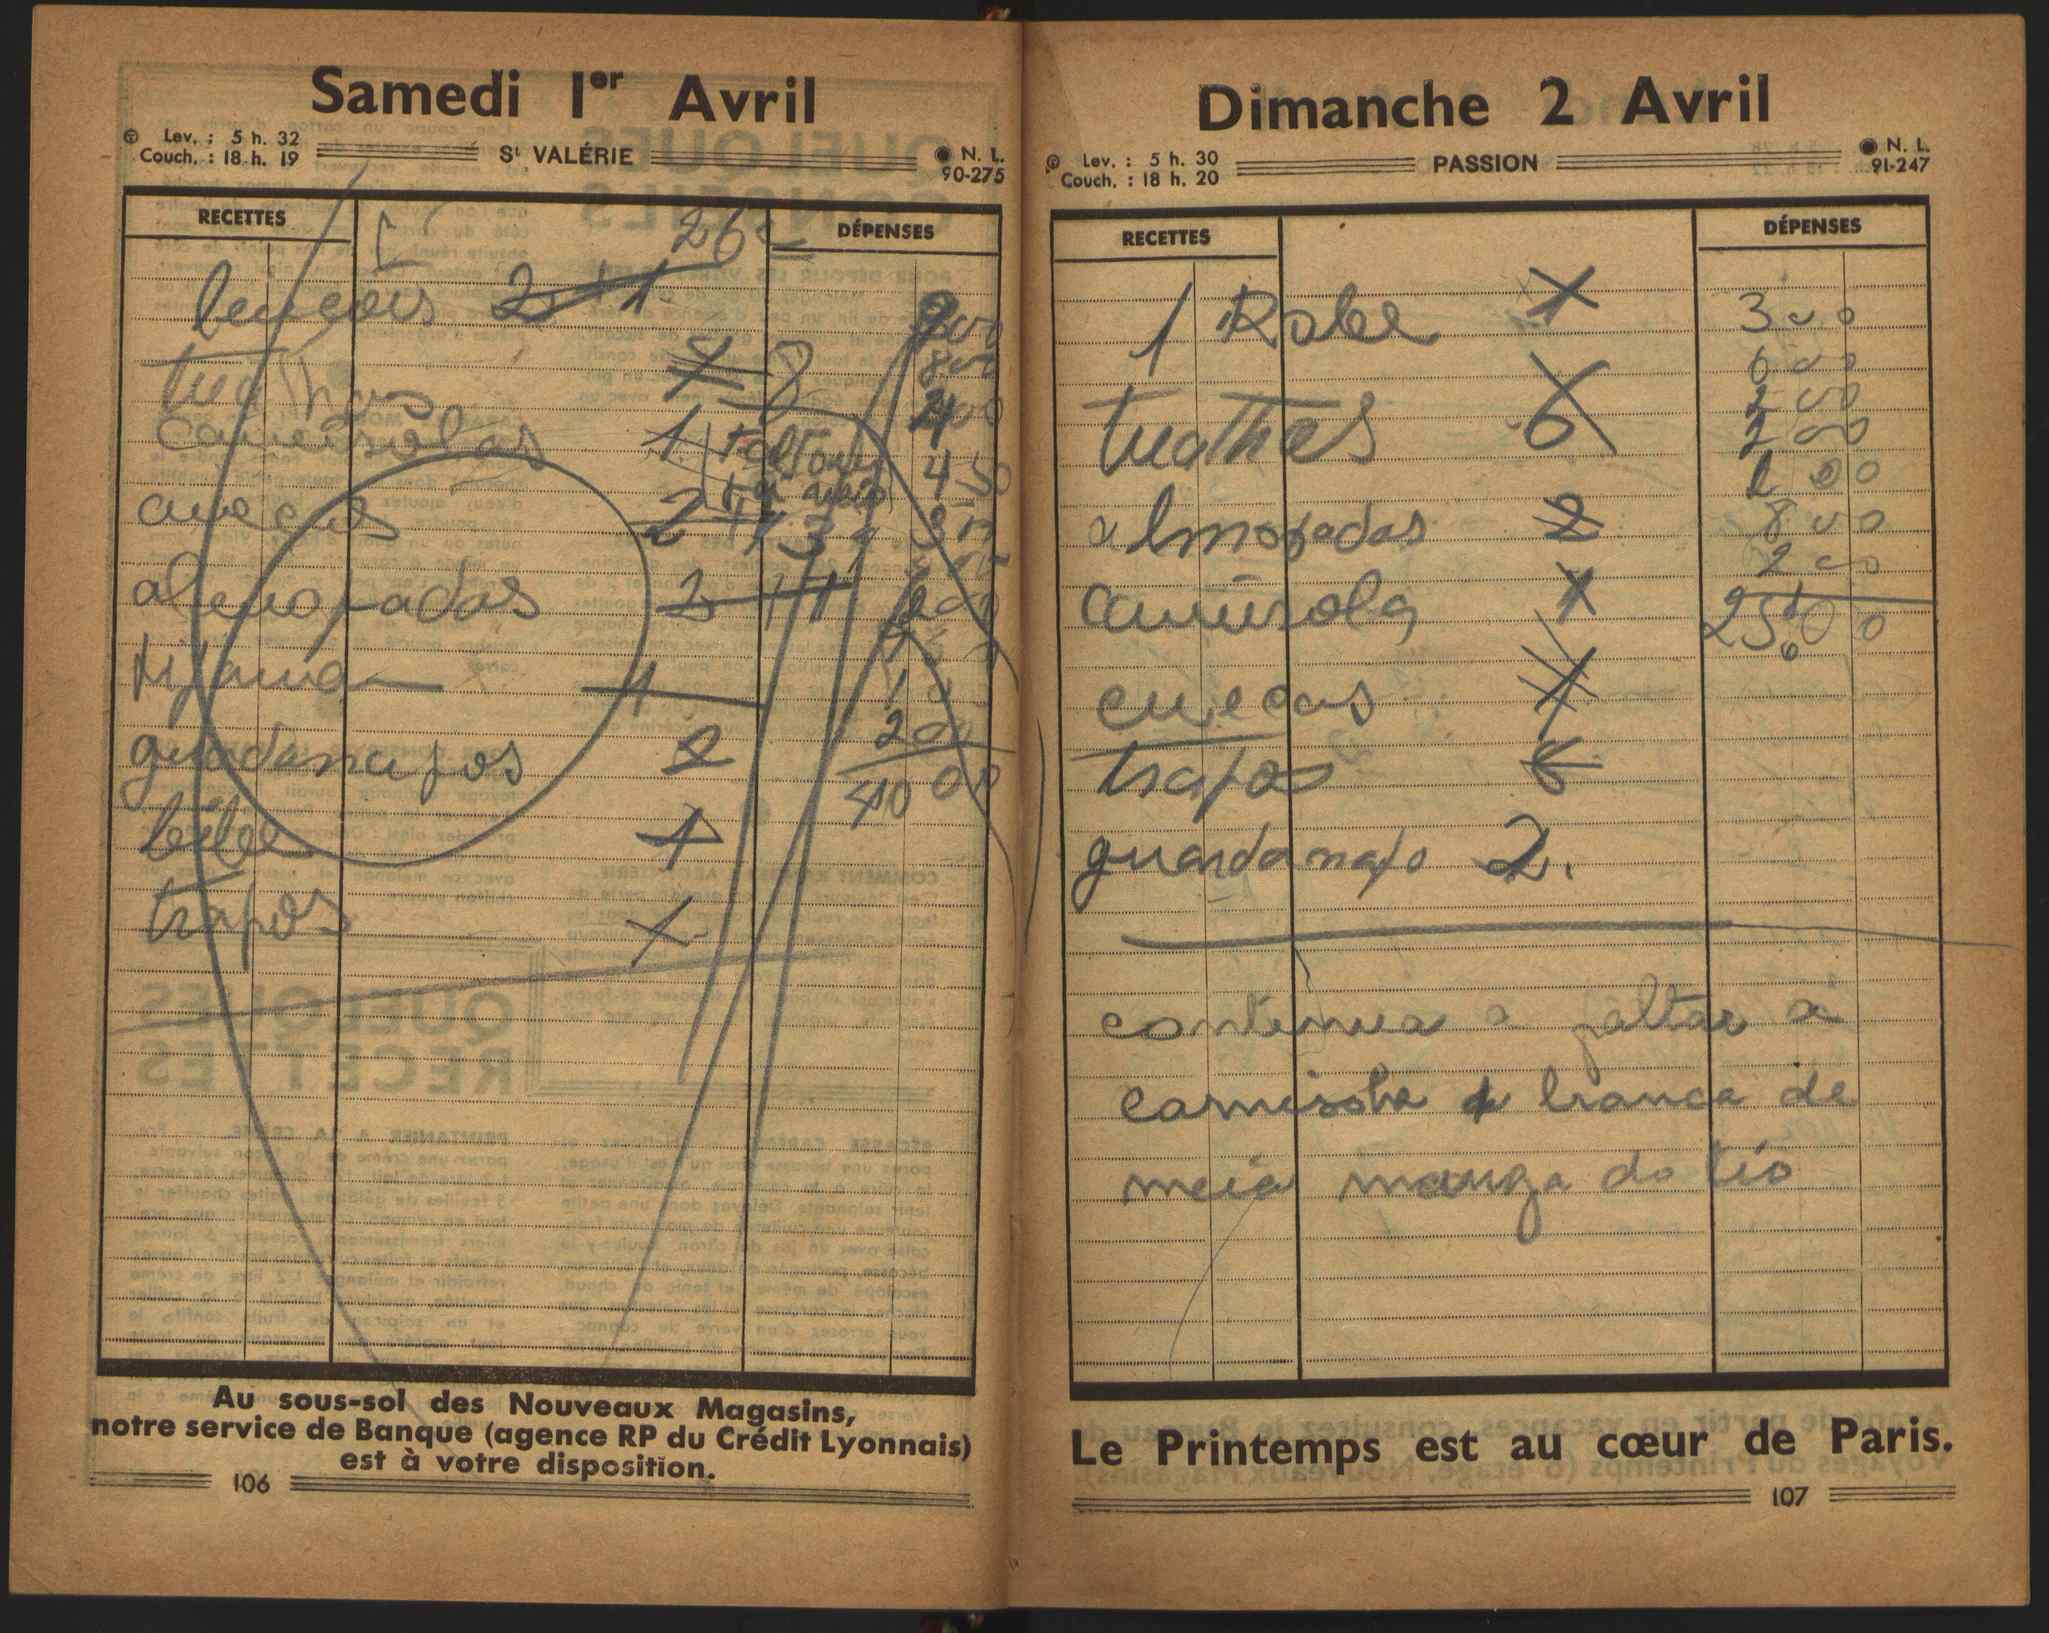 Samedi 1er Avril
Lev. : 5 h. 32
Couch. : 18 h. 19
St VALÉRIE
N. L.
90-275
RECETTES
DÉPENSES
26
lençois 2
camisolas 1
cuecas 2 3
almofadas 2
guardanapos 2
bébé 1
trapos 1
200
40 00
Au sous-sol des Nouveaux Magasins,
notre service de Banque (agence RP du Crédit Lyonnais)
est à votre disposition.
106
Dimanche 2 Avril
Lev. : 5 h. 30
Couch. : 18 h. 20
PASSION
N. L.
91-247
RECETTES
DÉPENSES
1 Robe 1 300
600
200
200
100
800
200
almofadas 2
camisola 1
cuecas 1
trapos 6
guardanapo 2.
continua a faltar a
camisola branca de
meia manga do tio
Le Printemps est au cœur de Paris.
107